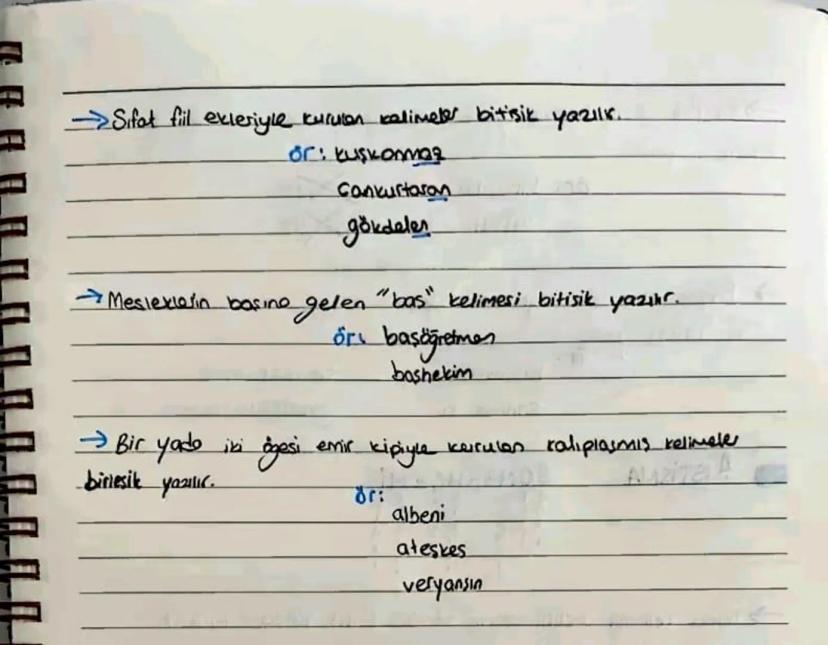 → Sıfat fiil ekleriyle kurulan kelimeler bitişik yazılır.
ör: kuşkonmaz
cankurtaran
gökdelen
→ Mesleklerin başına gelen "baş" kelimesi bitişik yazılır.
ör: başöğretmen
başhekim
→ Bir yada iki ögesi emir kipiyle kurulan kalıplaşmış kelimeler
birleşik yazılır.
ör:
albeni
ateşkes
veryansın